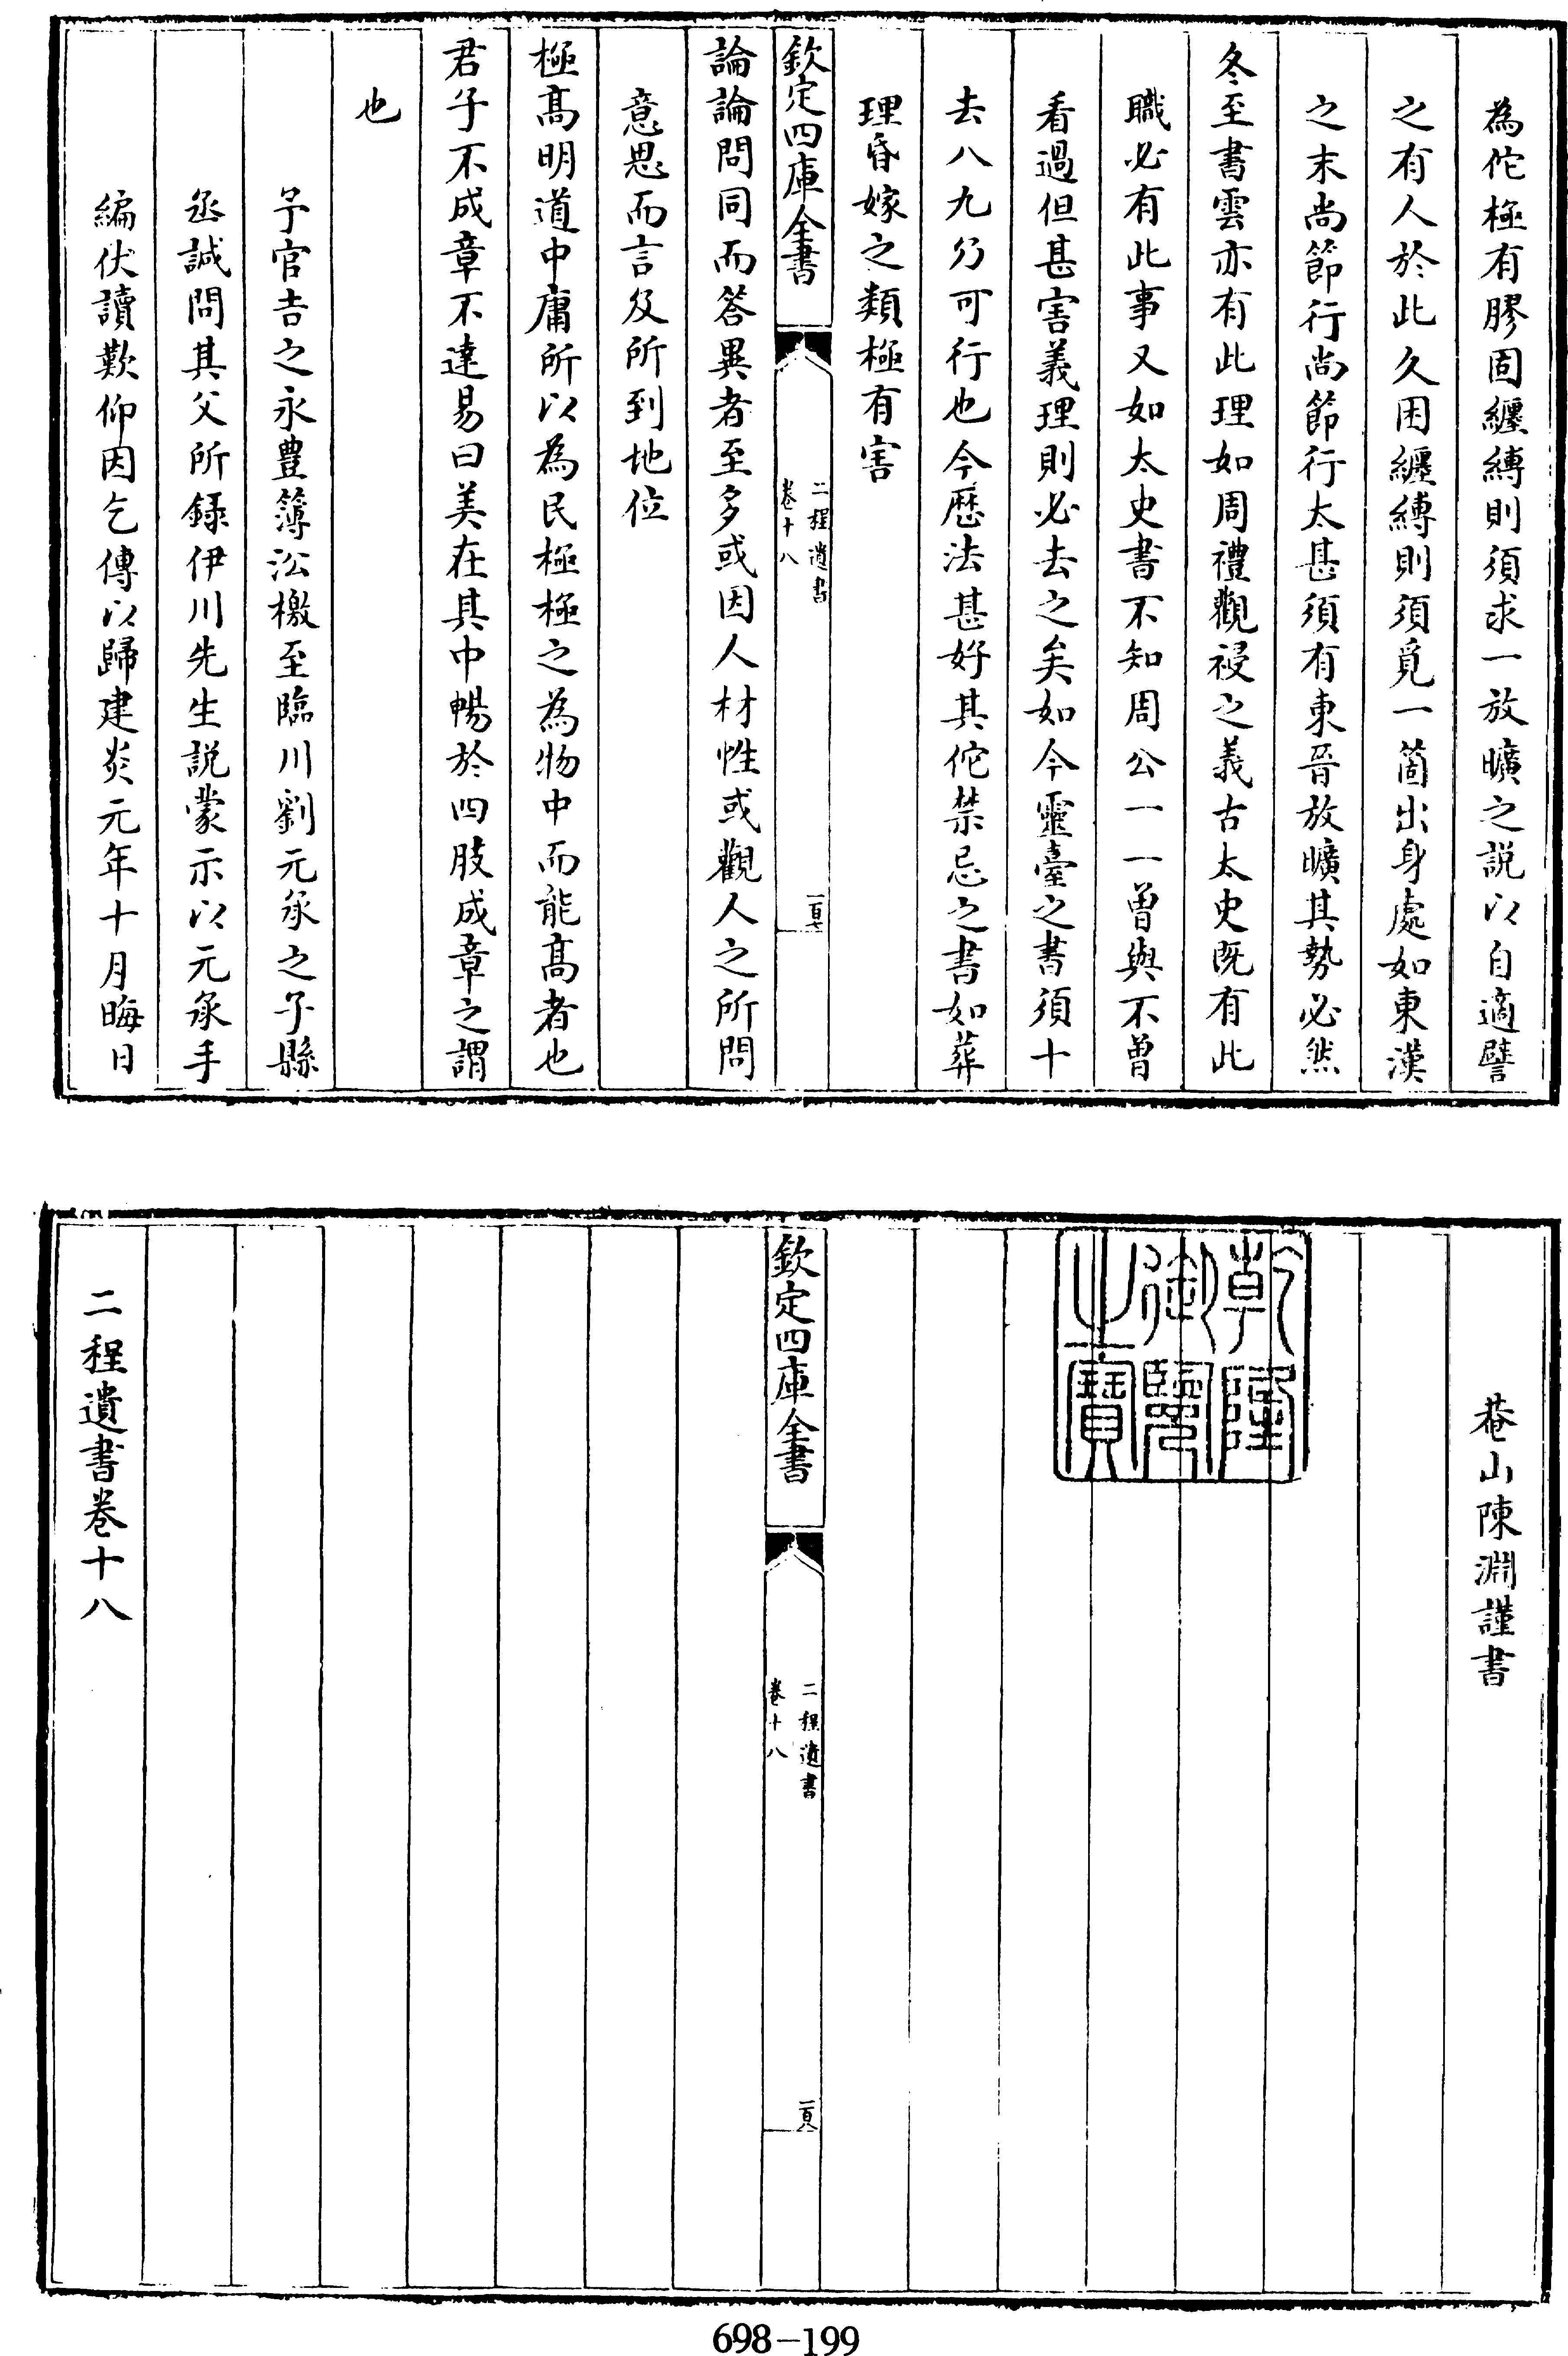 為佗極有膠固纏縛則須求一放曠之説以自適譬
之有人於此久困纏縛則須覓一箇出身處如東漢
之末尚節行尚節行太甚須有東晉放曠其勢必然
冬至書雲亦有此理如周禮觀祲之義古太史既有此
職必有此事又如太史書不知周公一一曾與不曾
看過但甚害義理則必去之矣如今靈臺之書須十
去八九乃可行也今歴法甚好其佗禁忌之書如葬
理昏嫁之類極有害
欽定四庫全書
二程遺書
卷十八
一百七
論論問同而答異者至多或因人材性或觀人之所問
意思而言及所到地位
極髙明道中庸所以為民極極之為物中而能髙者也
君子不成章不達易曰美在其中暢於四肢成章之謂
也
予官吉之永豊簿沿檄至臨川劉元承之子縣
丞誠問其父所錄伊川先生説蒙示以元承手
編伏讀歎仰因乞傳以歸建炎元年十月晦日
菴山陳淵謹書
乾隆
御覽
之寶
欽定四庫全書
二程遺書
卷十八
一百八
二程遺書卷十八
698-199